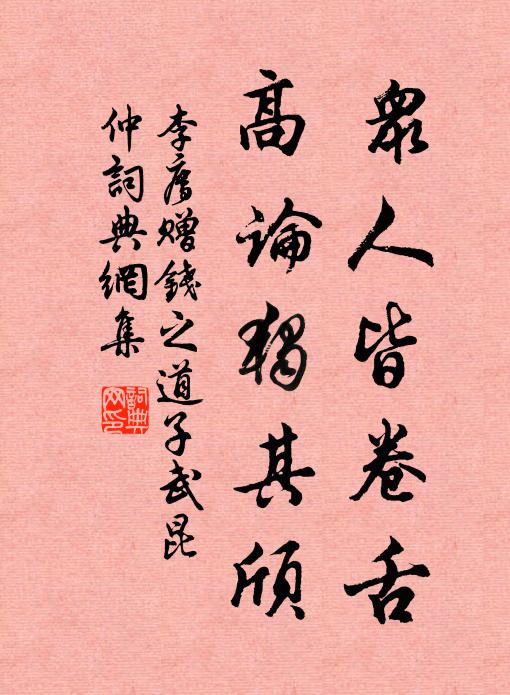 眾人皆卷舌
高論獨其頎
李廌贈錢之道子武昆
仲詞典網集
詞典
网印